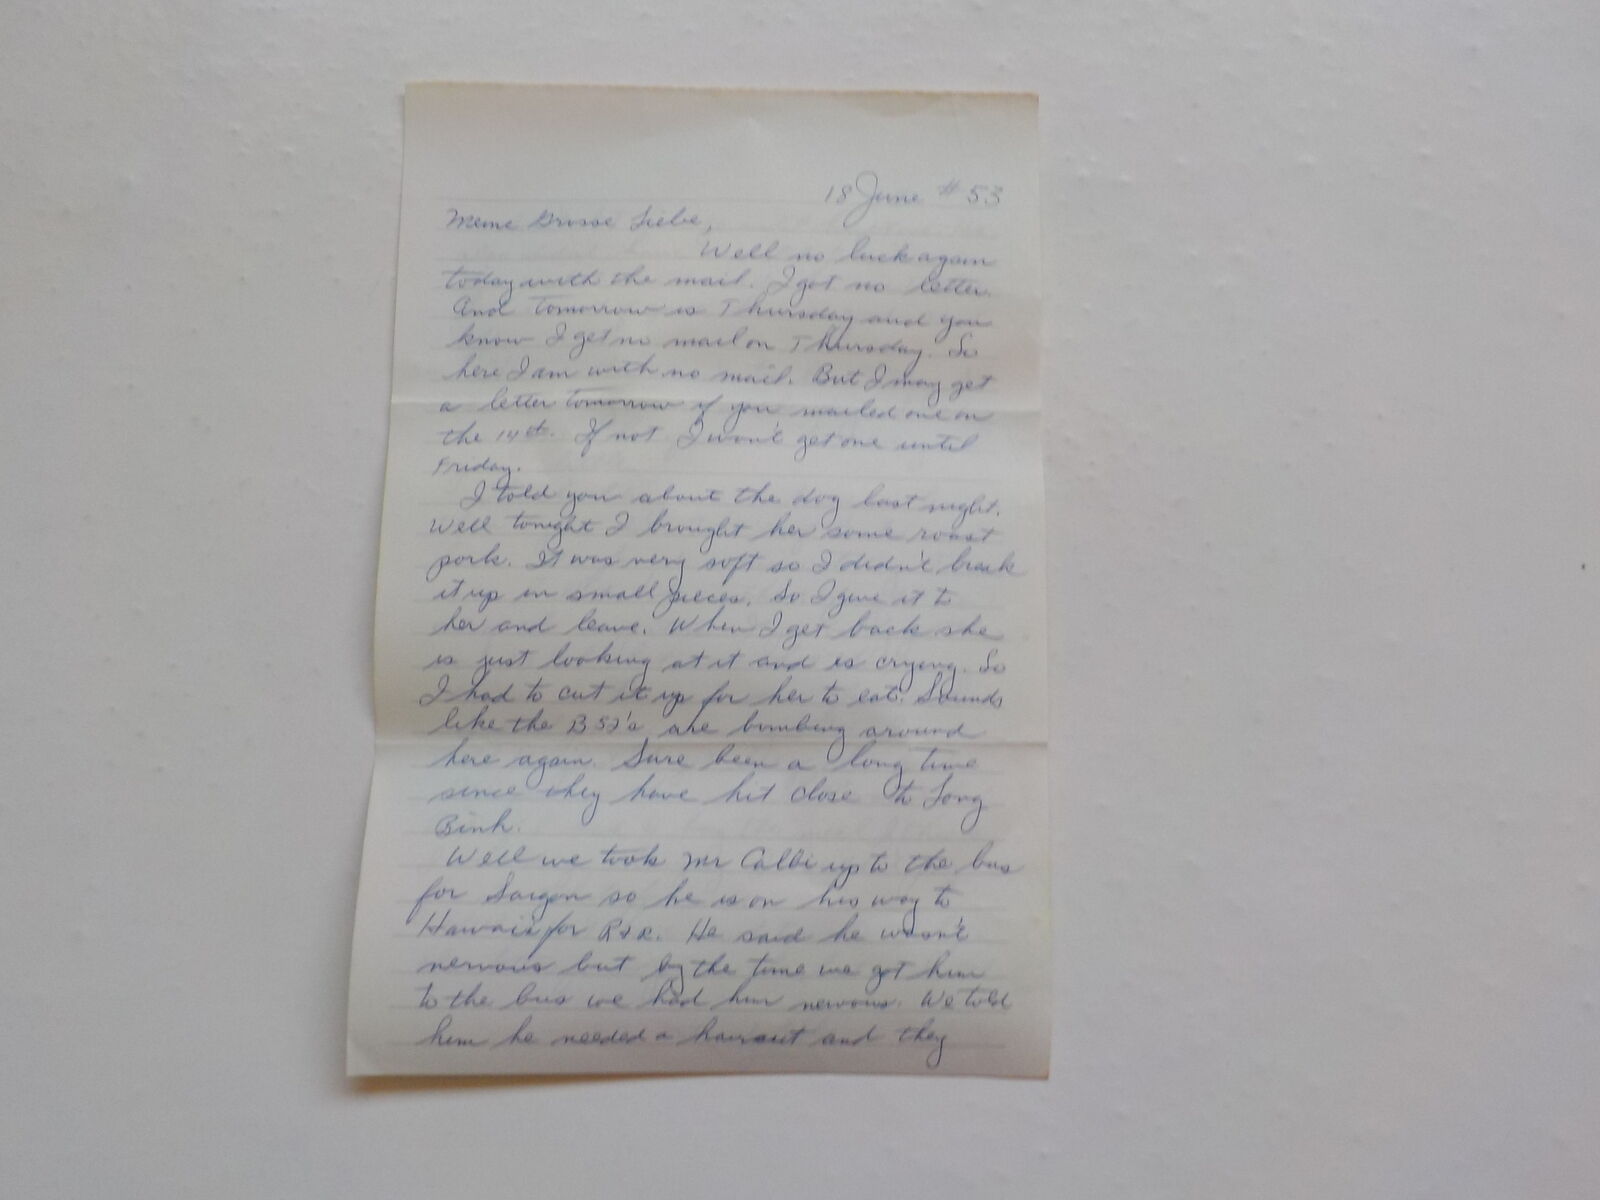 18 June #53
Meine Grosse Liebe,
Well no luck again
today with the mail. I got no letter.
And tomorrow is Thursday and you
know I get no mail on Thursday. So
here I am with no mail. But I may get
a letter tomorrow if you mailed one on
the 14th. If not I won't get one until
Friday.
I told you about the dog last night.
Well tonight I brought her some roast
pork. It was very soft so I didn't break
it up in small pieces. So I give it to
her and leave. When I get back she
is just looking at it and is crying. So
I had to cut it up for her to eat. Sounds
like the B52's are bombing around
here again. Sure been a long time
since they have hit close to Long
Binh.
Well we took Mr Calbi up to the bus
for Saigon so he is on his way to
Hawaii for R&R. He said he wasn't
nervous but by the time we got him
to the bus we had him nervous. We told
him he needed a haircut and they